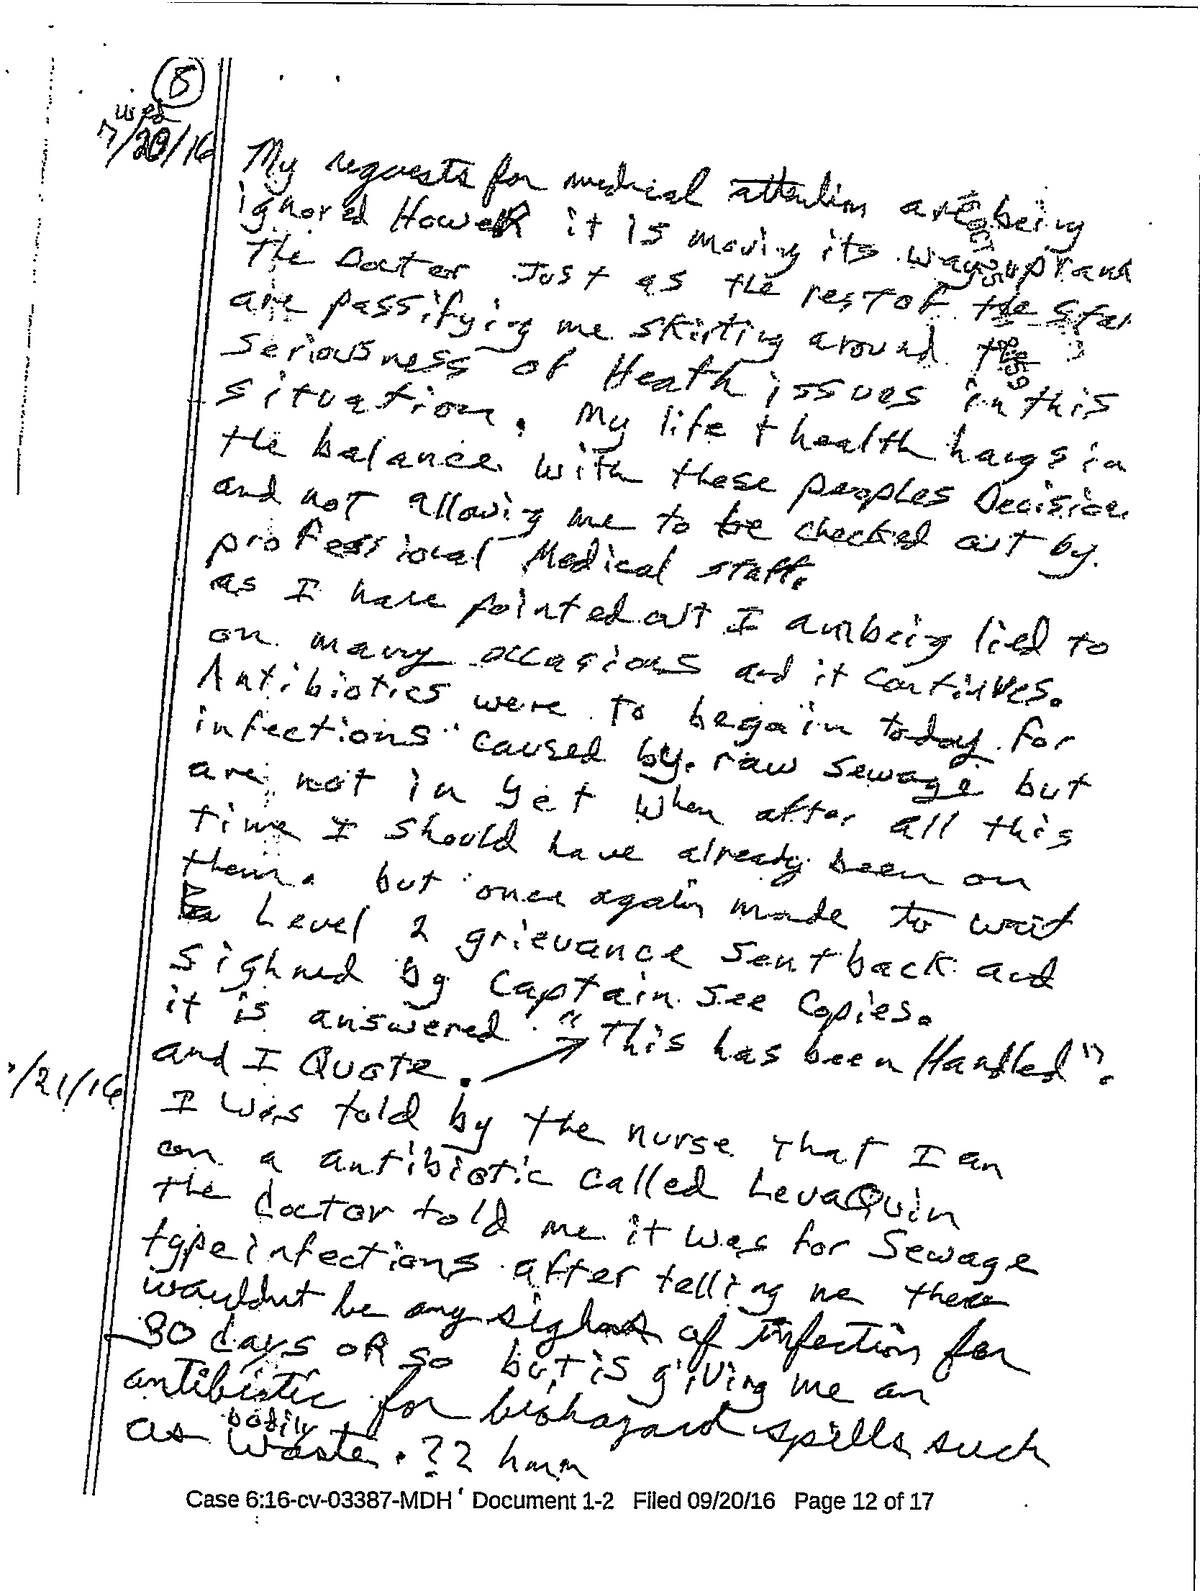 8
wed
7/20/16
My requests for medical attention are being
ignored However it is moving its way up rank
The Doctor Just as the rest of the staf
are passifying me skirting around the
seriousness of Heath issues in this
situation. My life + health hangs in
the balance with these peoples Decision
and not allowing me to be checked out by.
professional Medical staff.
as I have pointed out I am being lied to
on many occasions and it continues.
Antibiotics were to begain today for
infections caused by. raw sewage but
are not in yet when after all this
time I should have already been on
them. but once again made to wait
Level 2 grievance sent back and
sighned by Captain see Copies.
it is answered "This has been Handled".
and I Quote.
/21/16
I was told by the nurse that I am
on a antibiotic called LevaQuin
the doctor told me it was for Sewage
type infections after telling me there
wouldnt be any sighns of infection for
30 days OR so but is giving me an
antibiotic for biohazard spills such
as bodily waste. ?? hmm
Case 6:16-cv-03387-MDH Document 1-2 Filed 09/20/16 Page 12 of 17